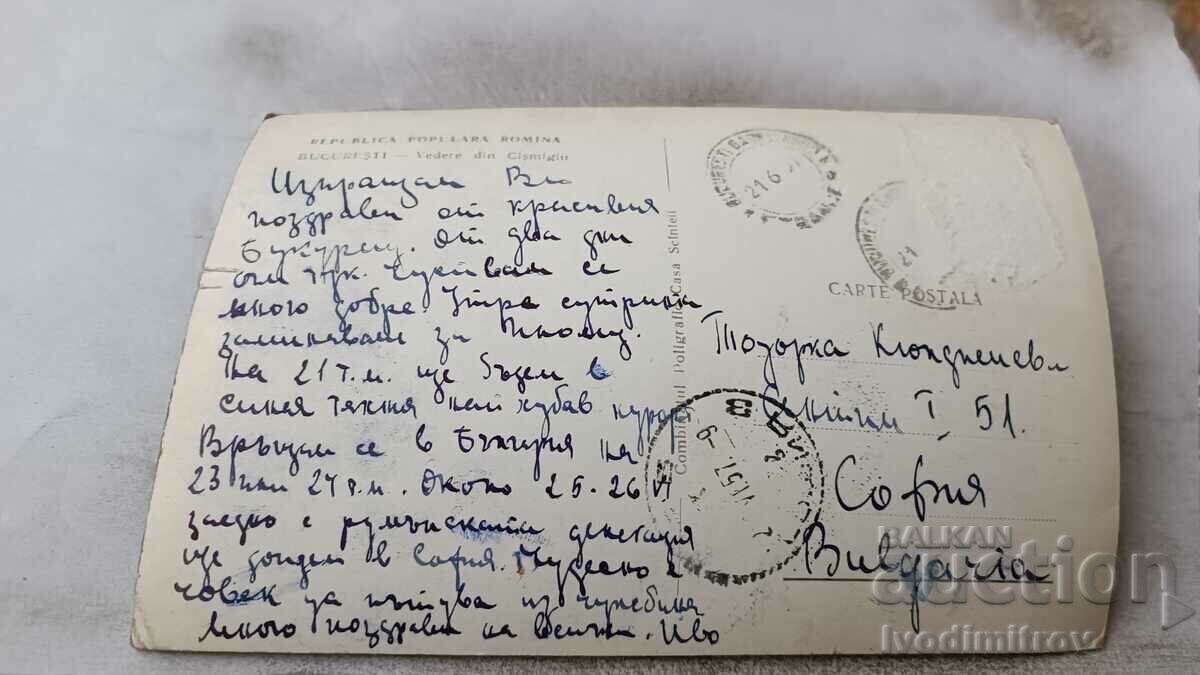 REPUBLICA POPULARA ROMINA
BUCUREȘTI — Vedere din Cișmigiu
Изпращам Ви
поздрави от красивия
Букурещ. От два дни
съм тук. Чувствам се
много добре. Утре сутринта
заминавам за
На 21 т.м. ще бъдем в
синая техния най хубав курорт
Връщам се в България на
23 или 24 т.м. Около 25-26 VI
заедно с румънската делегация
ще дойдем в София. Чудесно е
човек да пътува из чужбина
Много поздрави на всички. Иво
Combinatul Poligrafic Casa Scînteii
BUCUREȘTI
21 6
BUCUREȘTI
21
CARTE POSTALA
Тодорка
I, 51.
София
Bulgaria
BALKAN
auction
Ivodimitrov